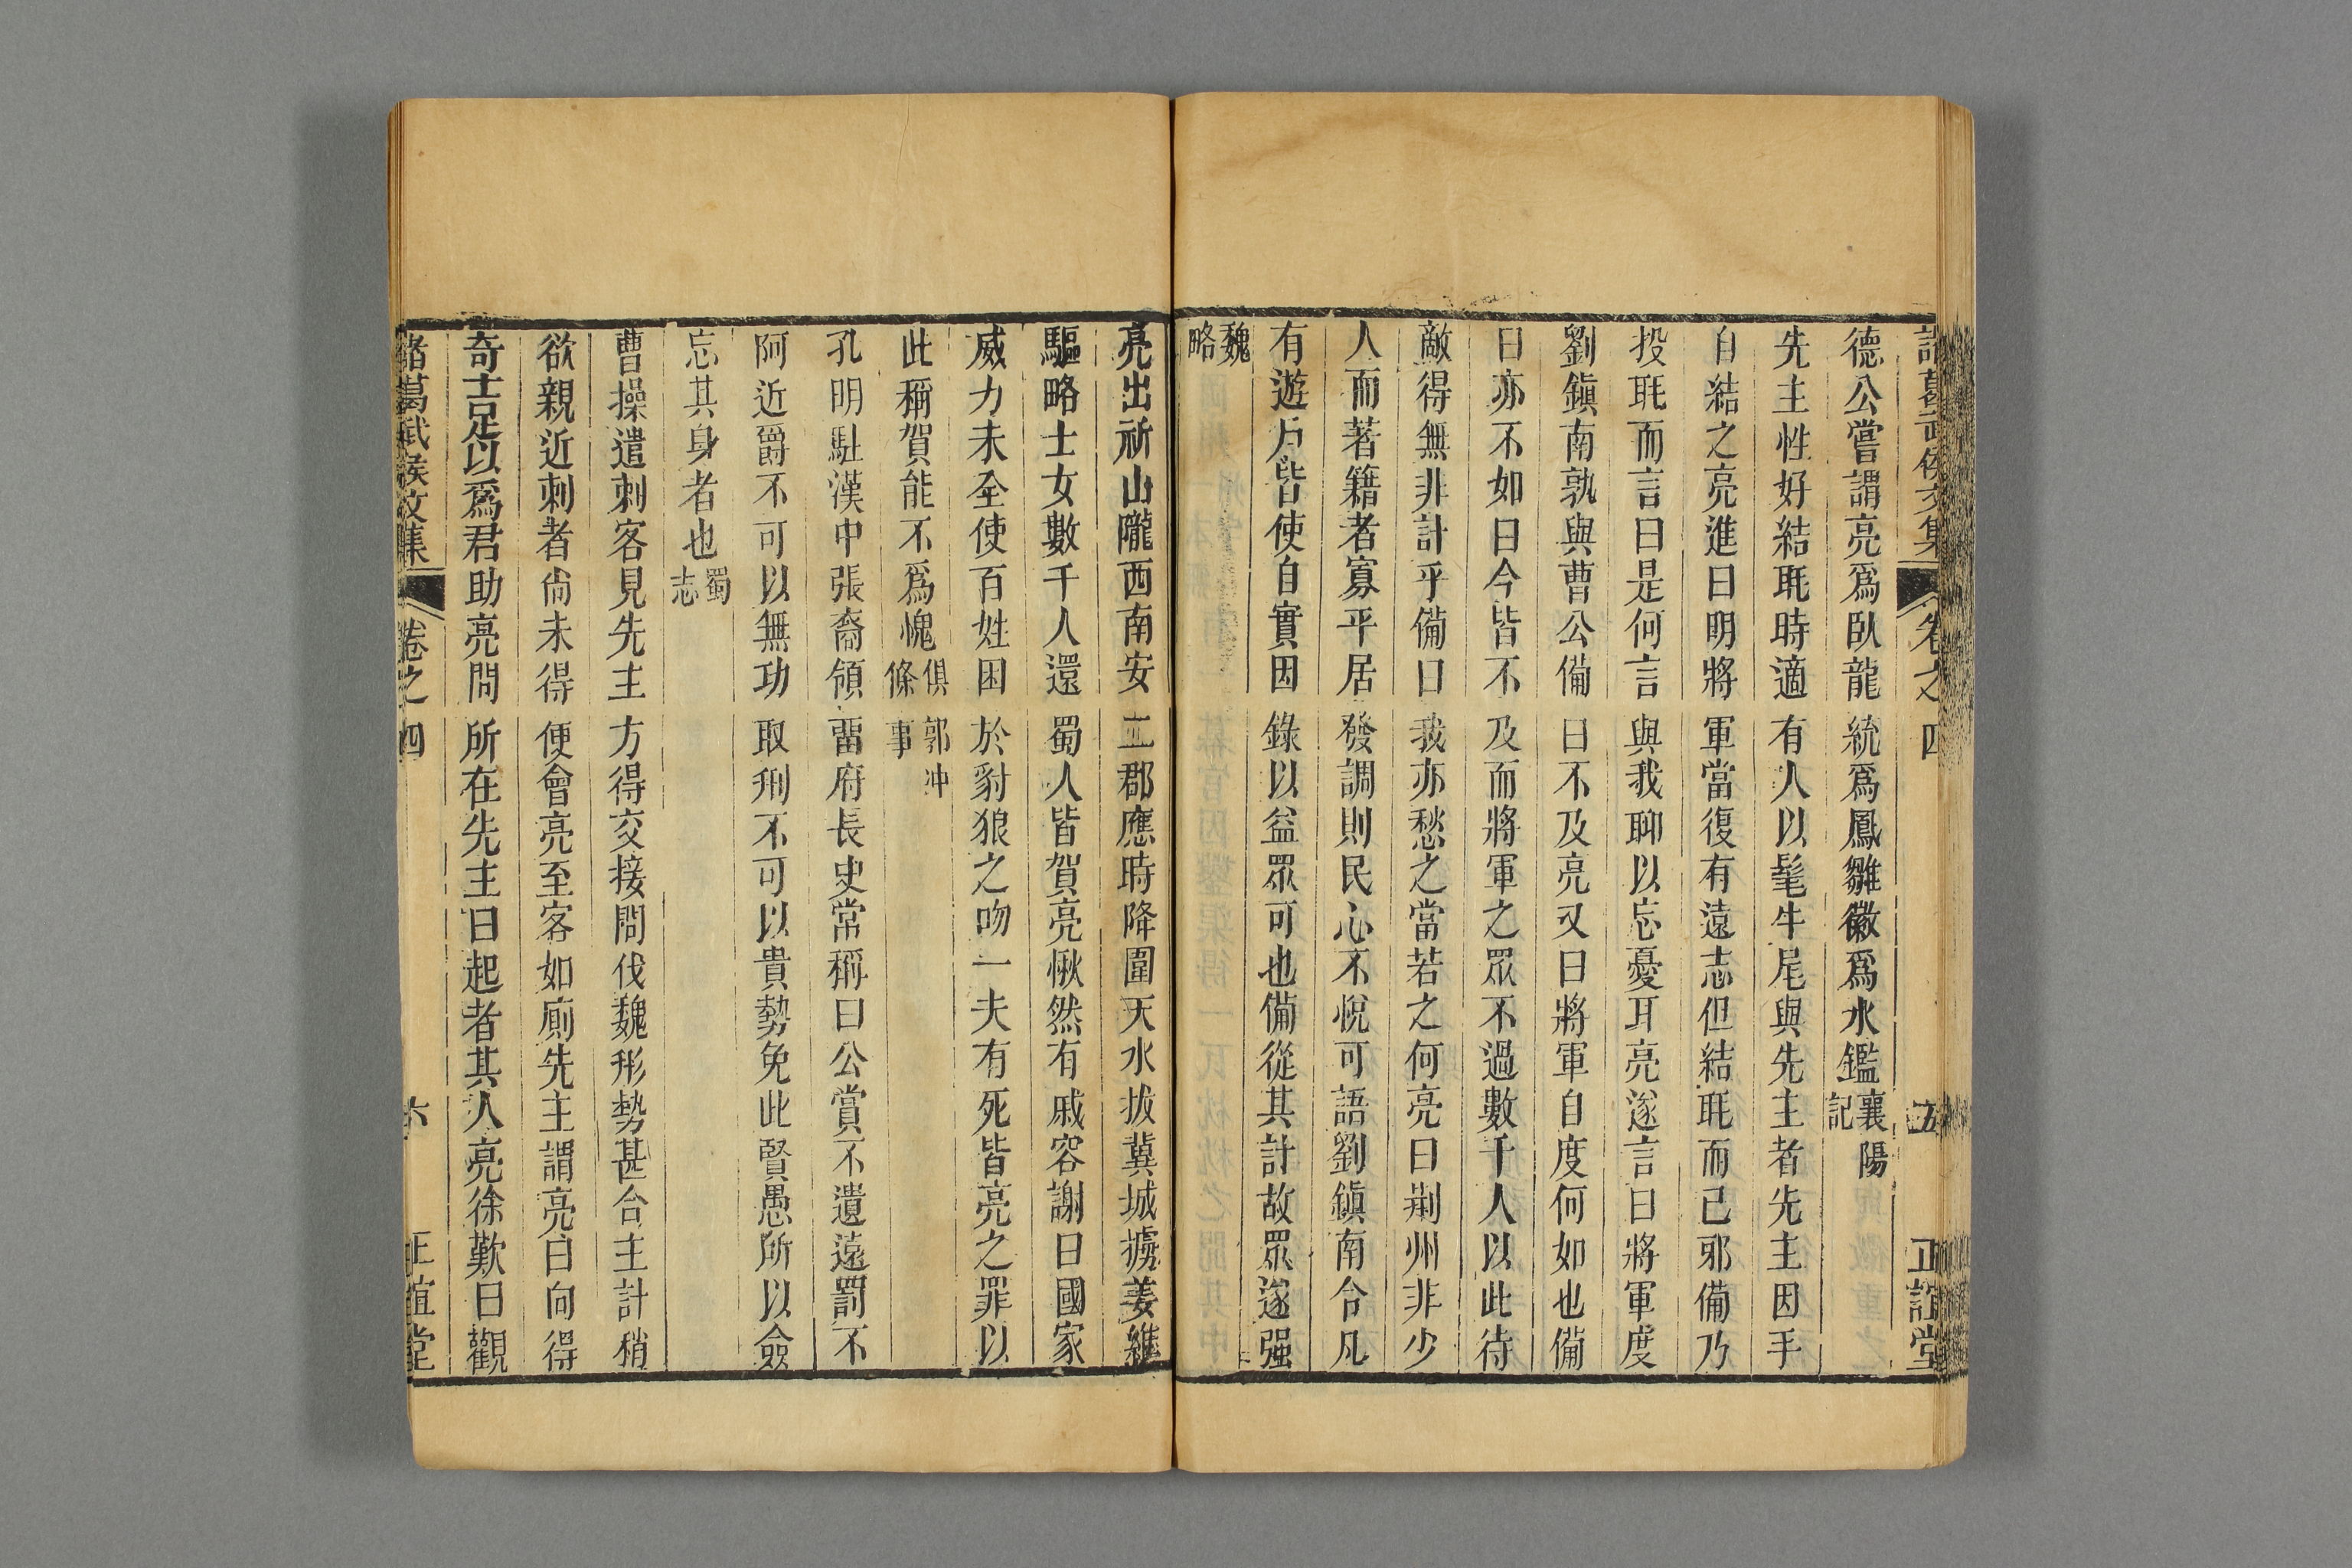 諸葛武侯文集 卷之四 五 正誼堂
德公嘗謂亮爲臥龍統爲鳳雛徽爲水鑑襄陽記
先主性好結毦時適有人以髦牛尾與先主者先主因手
自結之亮進曰明將軍當復有遠志但結毦而已邪備乃
投毦而言曰是何言與我聊以忘憂耳亮遂言曰將軍度
劉鎭南孰與曹公備曰不及亮又曰將軍自度何如也備
曰亦不如曰今皆不及而將軍之眾不過數千人以此待
敵得無非計乎備曰我亦愁之當若之何亮曰荆州非少
人而著籍者寡平居發調則民心不悅可語劉鎭南令凡
有遊戶皆使自實因錄以益眾可也備從其計故眾遂强
魏略
亮出祈山隴西南安二郡應時降圍天水拔冀城擄姜維
驅略士女數千人還蜀人皆賀亮愀然有戚容謝曰國家
威力未全使百姓困於豺狼之吻一夫有死皆亮之罪以
此稱賀能不爲愧俱郭冲條事
孔明駐漢中張裔領畱府長史常稱曰公賞不遺遠罰不
阿近爵不可以無功取刑不可以貴勢免此賢愚所以僉
忘其身者也蜀志
曹操遣刺客見先主方得交接問伐魏形勢甚合主計稍
欲親近刺者尙未得便會亮至客如廁先主謂亮曰向得
奇士足以爲君助亮問所在先主曰起者其人亮徐歎曰觀
諸葛武侯文集 卷之四 六 正誼堂